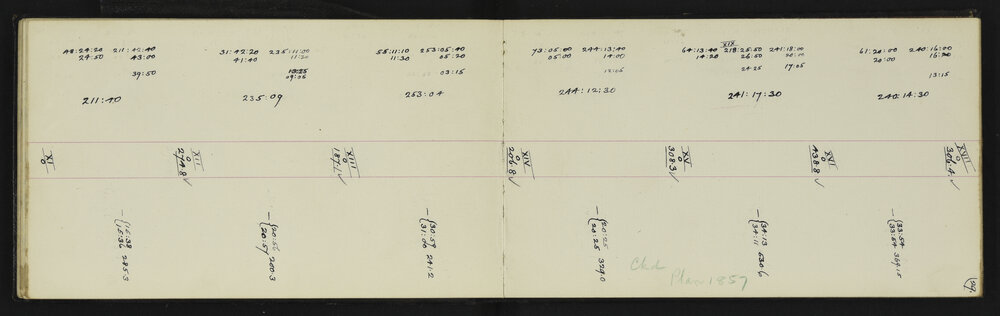 48:24:20 211:42:40
24:50 43:00
39:50
211:40
31:42:20 235:11:00
41:40 11:20
09:05
235:09
55:11:10 253:05:40
11:30 05:20
03:15
253:04
73:05:00 244:13:40
05:00 14:00
12:05
244:12:30
XIX
64:13:40 218:25:50 241:18:00
14:20 26:50 20:00
24:25 17:05
241:17:30
61:20:00 240:16:00
20:00
13:15
240:14:30
XI
0
XII
0
274.8 ✓
XIII
0
187.1 ✓
XIV
0
206.8 ✓
XV
0
308.3 ✓
XVI
0
438.8 ✓
XVII
0
306.4 ✓
— { 15:38
15:36 285.3
— { 20:56
20:57 200.3
— { 30:59
31:00 241.2
— { 20:25
20:25 329.0
— { 34:13
34:11 530.6
— { 33:54
33:54 369.15
Ckd
Plan 1857